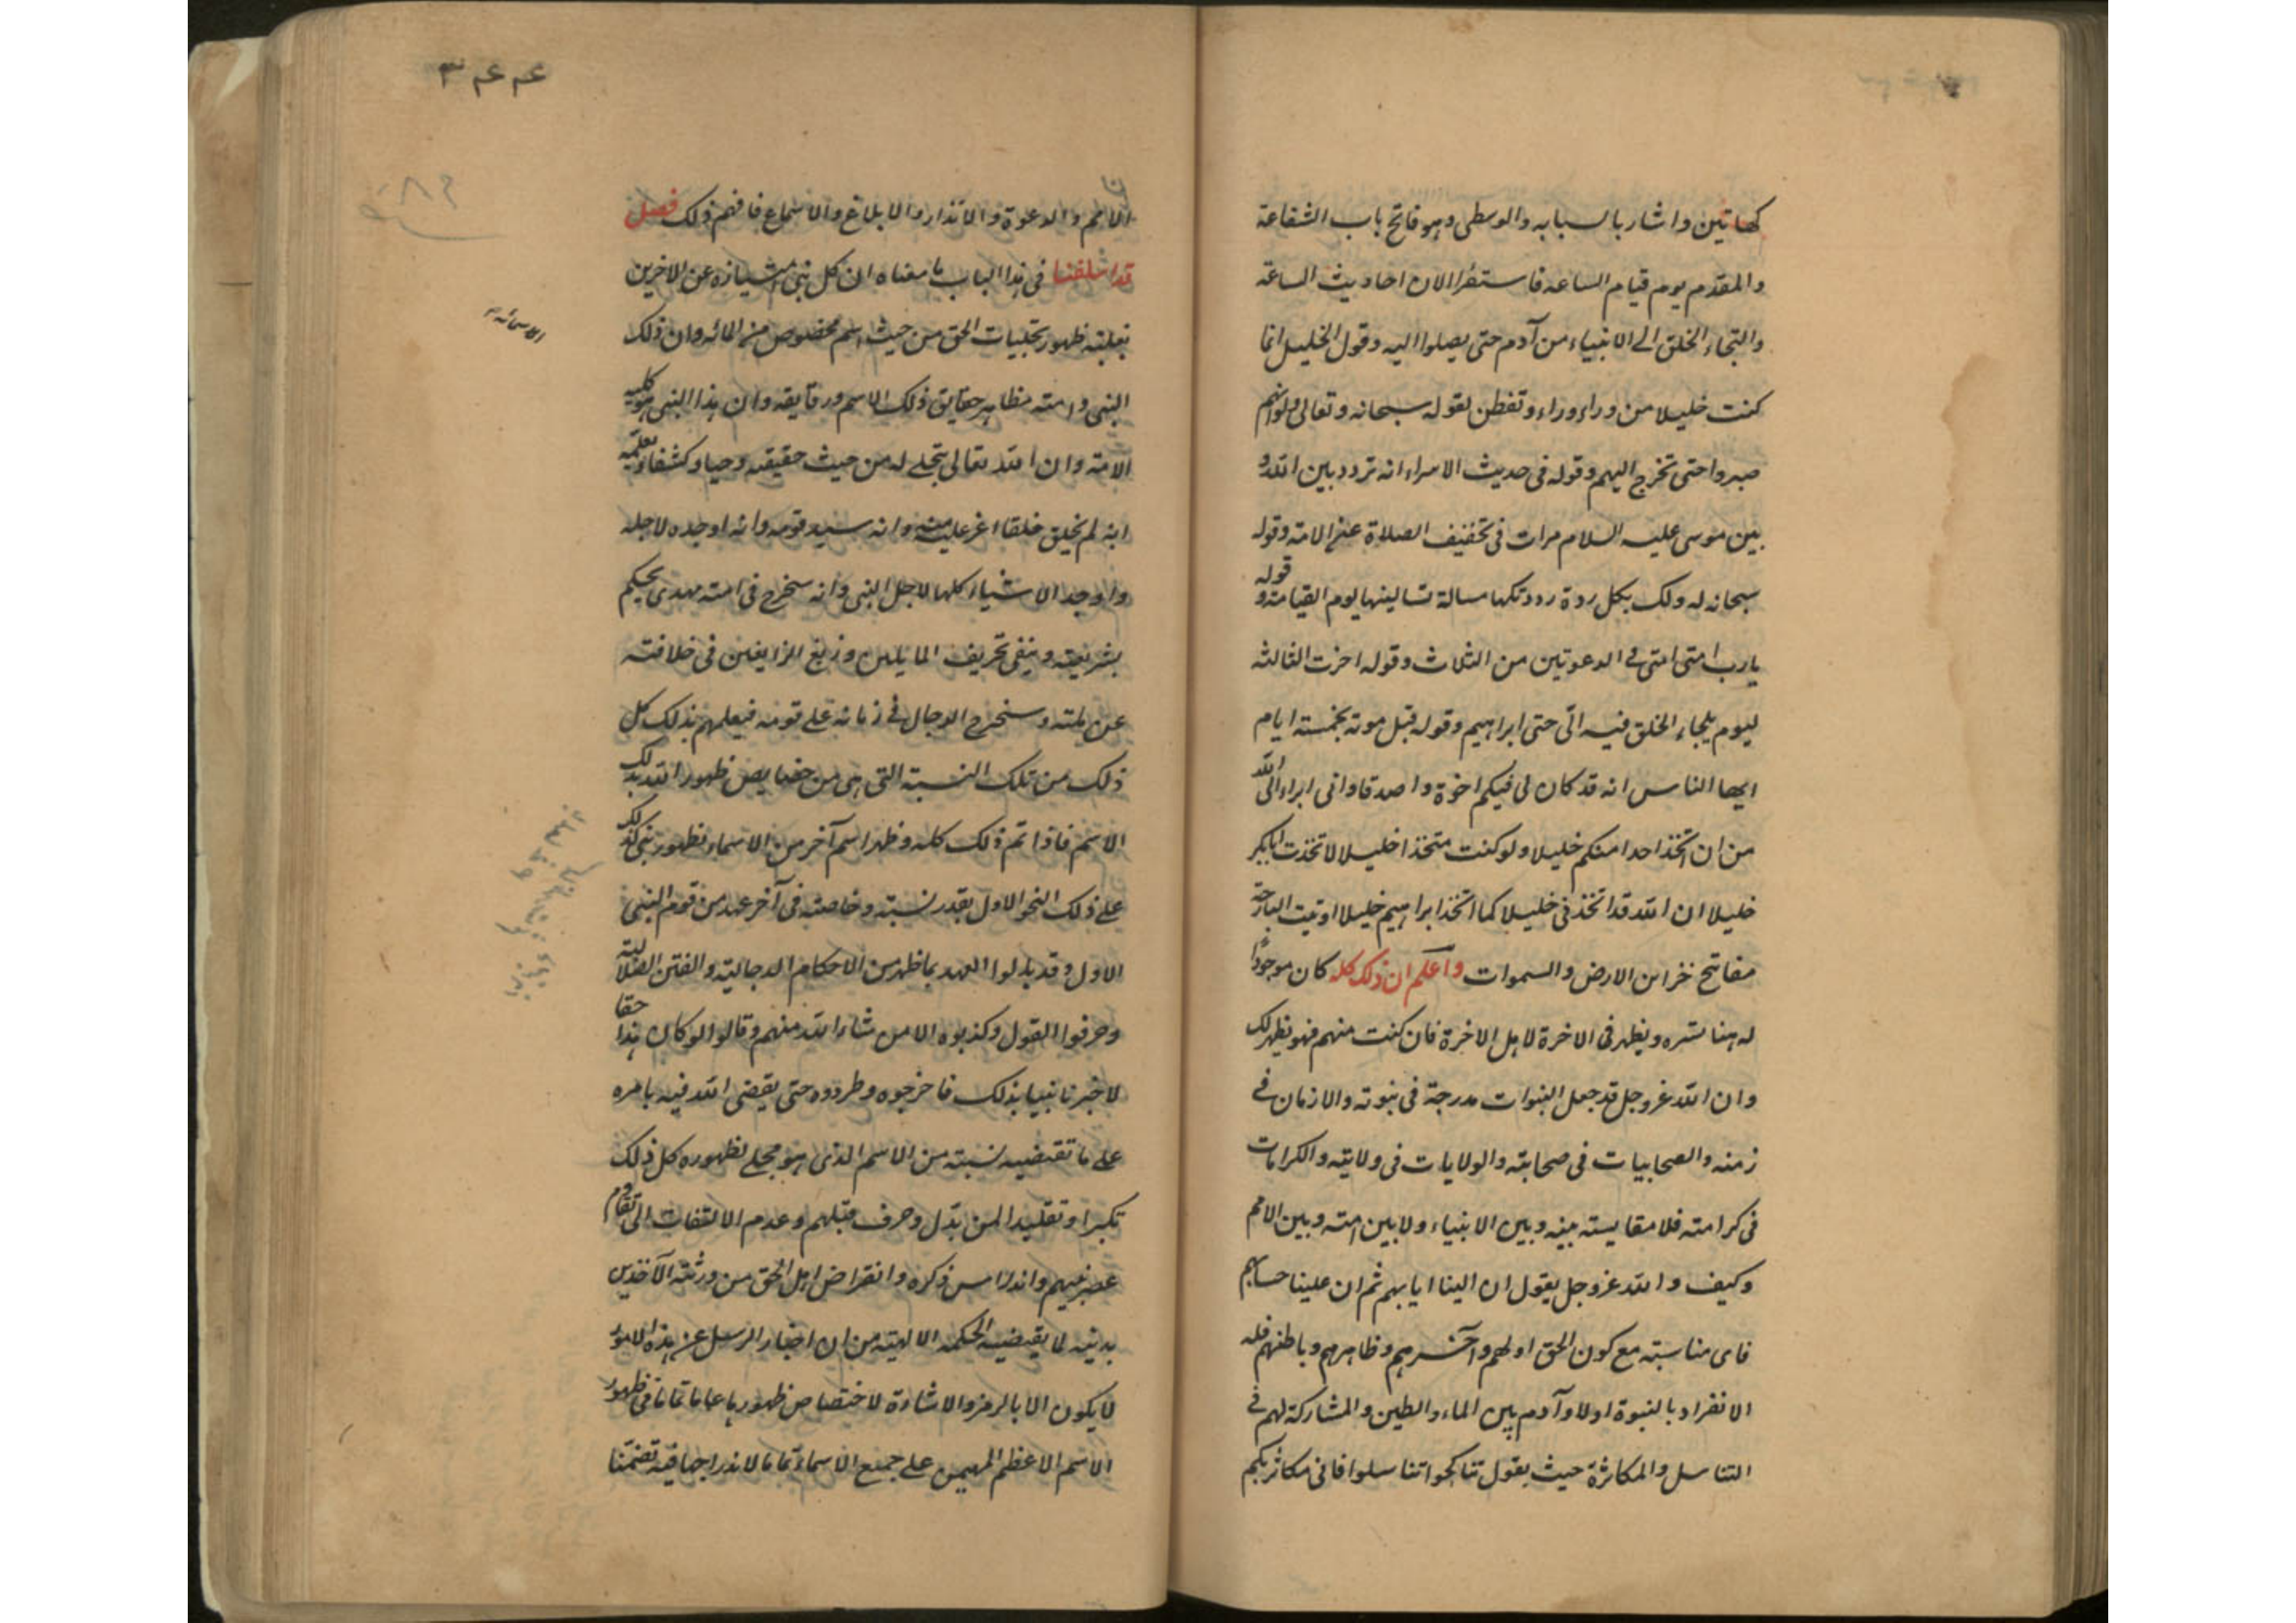 كهاتين واشار بالسبابه والوسطى وهو فاتح باب الشفاعة
والمقدم يوم قيام الساعه فاستقرا الان احاديث الساعة
والتجاء الخلق الى الانبياء من آدم حتى يصلوا اليه وقول الخليل انما
كنت خليلا من وراء وراء وتفطن لقوله سبحانه وتعالى ولو انهم
صبروا حتى تخرج اليهم وقوله فى حديث الاسراء انه تردد بين الله و
بين موسى عليه السلام مرات فى تخفيف الصلاة عن الامة وقوله
سبحانه له ولك بكل ردة رددتكها مسالة تسالينها يوم القيامة و قوله
يا رب امتى امتى فى الدعوتين من الثلاث وقوله اخرت الثالثه
ليوم يلجاء الخلق فيه الىّ حتى ابراهيم وقوله قبل موته بخمسة ايام
ايها الناس انه قد كان لى فيكم اخوة واصدقا وانى ابراء الى الله
من ان اتخذ احدا منكم خليلا ولو كنت متخذا خليلا لاتخذت ابابكر
خليلا ان الله قد اتخذنى خليلا كما اتخذ ابراهيم خليلا اوتيت البارحة
مفاتيح خزاين الارض والسموات واعلم ان ذلك كله كان موجودا
له هنا بستره ويظهر فى الاخرة لاهل الاخرة فان كنت منهم فهو يظهر لك
وان الله عز وجل قد جعل النبوات مدرجة فى نبوته والازمان فى
زمنه والصحابيات فى صحابته والولايات فى ولايته والكرامات
فى كرامته فلا مقايسته بينه وبين الانبياء ولا بين امته وبين الامم
وكيف والله عز وجل يقول ان الينا ايابهم ثم ان علينا حسابهم
فاى مناسبته مع كون الحق اولهم وآخرهم وظاهرهم وباطنهم فله
الانفراد بالنبوة اولا وآدم بين الماء والطين والمشاركة لهم فى
التناسل والمكاثرة حيث يقول تناكحوا تناسلوا فانى مكاثر بكم
٣٤٤
الامم والدعوة والانذار والابلاغ والاسماع فافهم ذلك فصل
قد اسلفنا فى هذا الباب ما معناه ان كل نبى امتيازه عن الاخرين
بغلبته ظهور تجليات الحق من حيث اسم مخصوص من اسمائه وان ذلك
النبى وامته مظاهر حقايق ذلك الاسم ورقايقه وان هذا النبى هو كلية
الامة وان الله تعالى يتجلى له من حيث حقيقته وحيا وكشفا ويعلمه
انه لم يخلق خلقا اعز عليه منه وانه سيد قومه وانه اوجده لاجله
واوجد الاشياء كلها لاجل النبى وانه سيخرج فى امته مهدى يحكم
بشريعته وينفى تحريف المايلين وزيغ الزايغين فى خلافته
عن ملته وسيخرج الدجال فى زمانه على قومه فيعلمهم بذلك كل
ذلك من تلك النسبة التى هى من خصايص ظهور الله بذلك
الاسم فاذا تم ذلك كله وظهر اسم آخر من الاسماء بظهور نبى كذلك
على ذلك النحو الاول بقدر نسبته وخاصته فى آخر عهد من قوم النبى
الاول وقد بدلوا العهد بما ظهر من الاحكام الدجالية والفتن الضلالية
وحرفوا القول وكذبوه الا من شاء الله منهم وقالوا لو كان هذا حقا
لاخبرنا نبينا بذلك فاخرجوه وطردوه حتى يقضى الله فيه بامره
على ما تقتضيه نسبته من الاسم الذى هو مجلى لظهوره كل ذلك
تكبرا وتقليدا لمن بدّل وحرف قبلهم وعدم الالتفات الى تقادم
عصر نبيهم واندراس ذكره وانقراض اهل الحق من ورثته الآخذين
بدينه لما يقتضيه الحكمة الالهيته من ان اخبار الرسل عن هذه الامور
لا يكون الا بالرمز والاشارة لاختصاص ظهورها عاما تماما فى ظهور
الاسم الاعظم المهيمن على جميع الاسماء تماما لاندراجها فيه تضمّنا